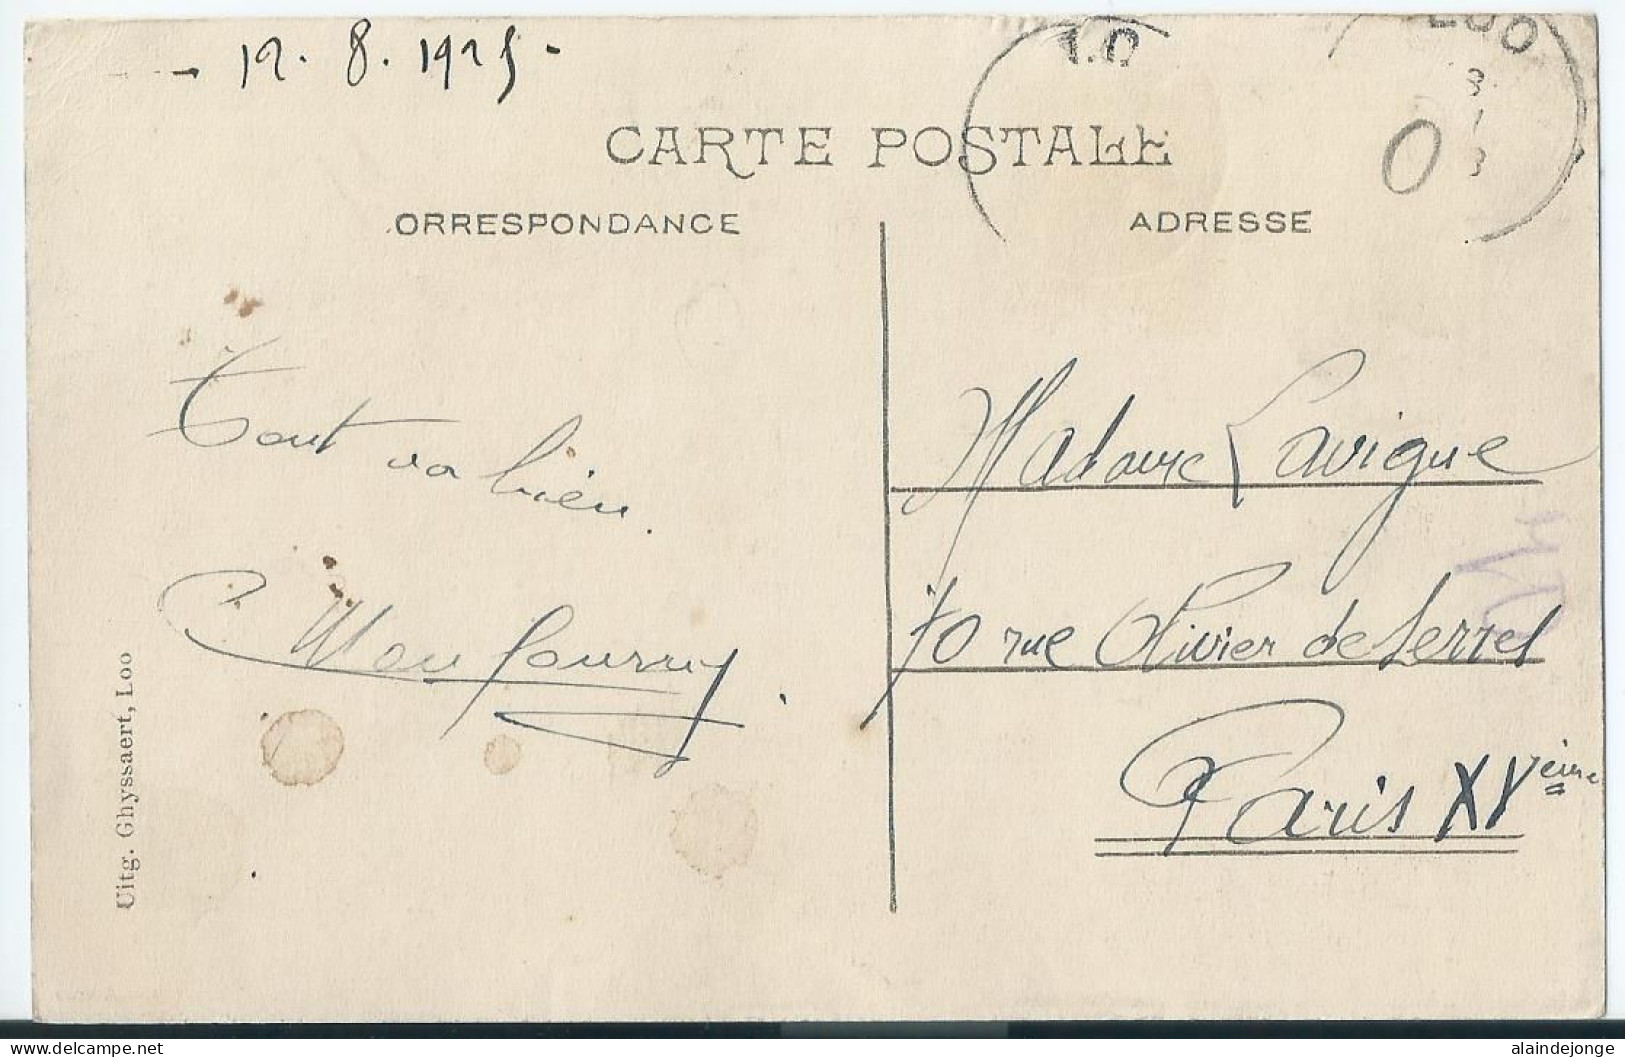 - 12. 8. 1925 -
LOO
CARTE POSTALE
ORRESPONDANCE
ADRESSE
Tout va bien.
Madame Lavigne
70 rue Olivier de Serres
Paris XVème
Uitg. Ghyssaert, Loo
delcampe.net
alaindejonge